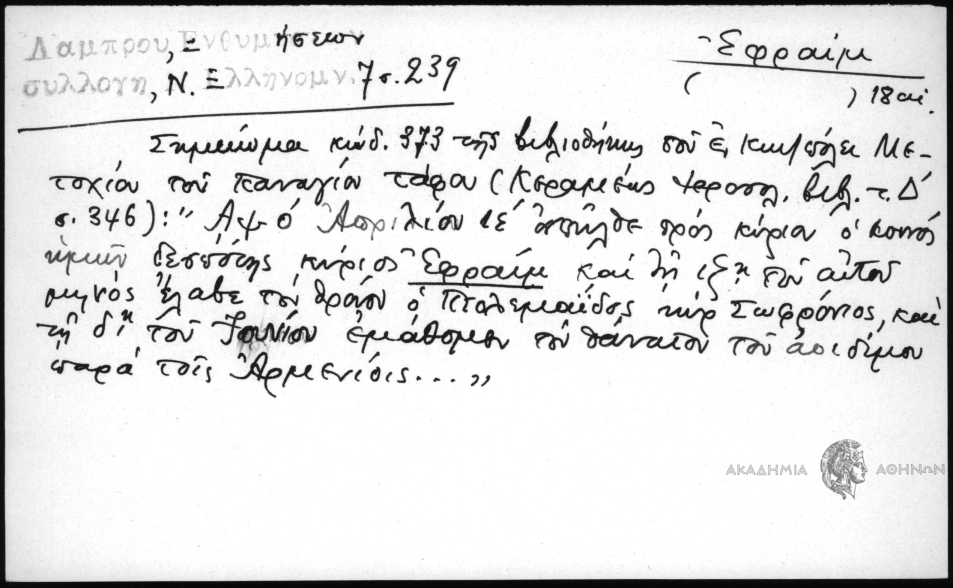 Λαμπρου, Ξ Ενθυμήσεων
συλλογη, Ν. Ξ Ελληνομν. 7 σ. 239
Ἐφραίμ
( ) 18 αἰ.
Σημείωμα κώδ. 373 τῆς βιβλιοθήκης τοῦ ἐν Κων/πόλει Με-
τοχίου τοῦ Παναγίου τάφου (Κεραμέως Ἱεροσολ. βιβλ. τ. Δ΄
σ. 346): " Αψ Ἀπριλίου ιε΄ ἀπῆλθε πρός κύριον ὁ κοινός
ἡμῶν δεσπότης κύριος Ἐφραίμ καί τῇ ιζῃ τοῦ αὐτοῦ
μηνός ἔλαβε τόν θρόνον ὁ Πτολεμαΐδος κύρ Σωφρόνιος, καί
τῇ δῃ τοῦ Ἰουνίου ἐμάθομεν τόν θάνατον τοῦ ἀοιδίμου
παρά τοῖς Ἀρμενίοις....„
ΑΚΑΔΗΜΙΑ ΑΘΗΝΩΝ